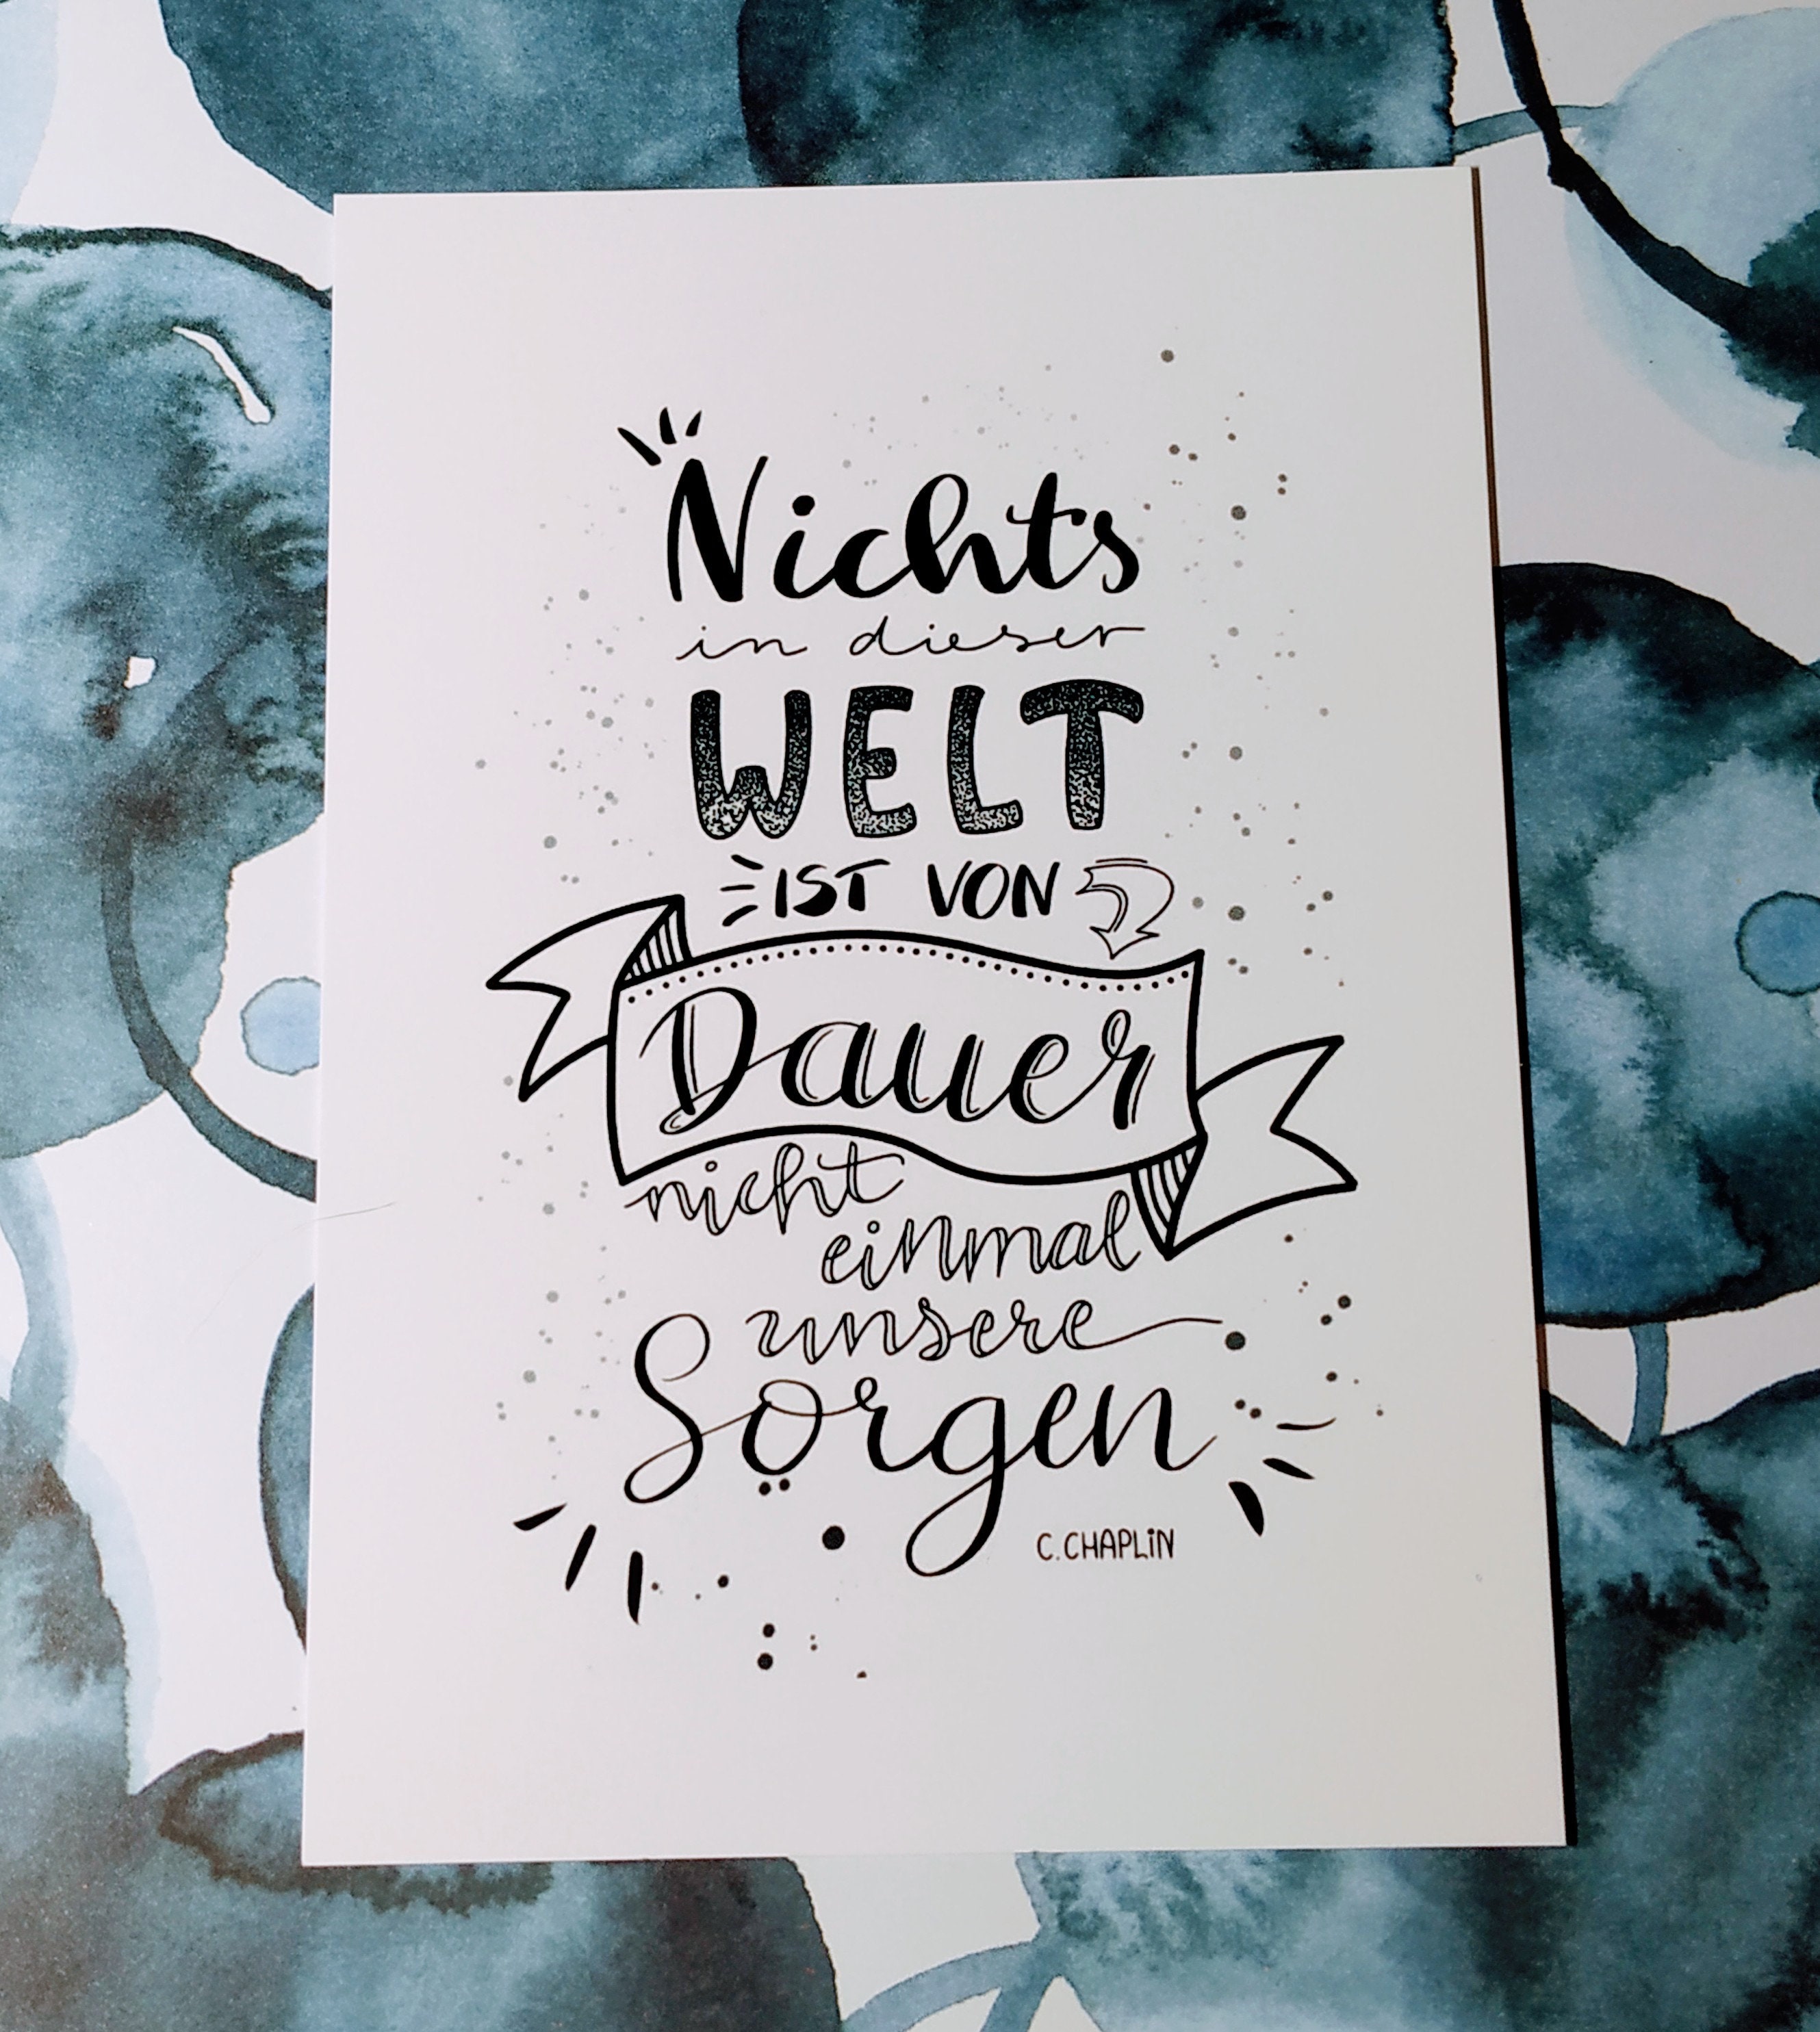 Nichts
in dieser
WELT
IST VON
Dauer
nicht
einmal
unsere
Sorgen
C. CHAPLiN